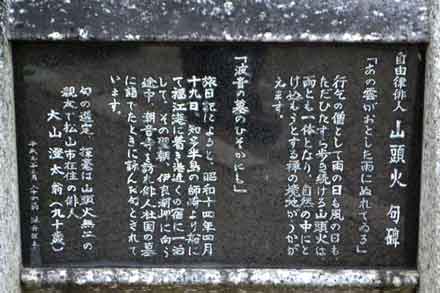 自由律俳人 山頭火 句碑
「あの雲がおとした雨にぬれてゐる」
行乞の僧として雨の日も風の日も、
ただひたすら歩き続ける山頭火は
雨とも一体となり、自然の中にと
け込もうとする禅の境地がうかが
えます。
「波音の墓のひそかにも」
旅日記によると、昭和十四年四月
十九日、知多半島の師崎より船に
て福江港に着き港近くの宿に一泊
して、その翌朝、伊良湖岬に向う
途中、潮音寺を訪れ俳人杜国の墓
に詣でたときに詠んだ句とされて
います。
句の選定、揮毫は山頭火無二の
親友で松山市在住の俳人
大山澄太翁(九十歳)